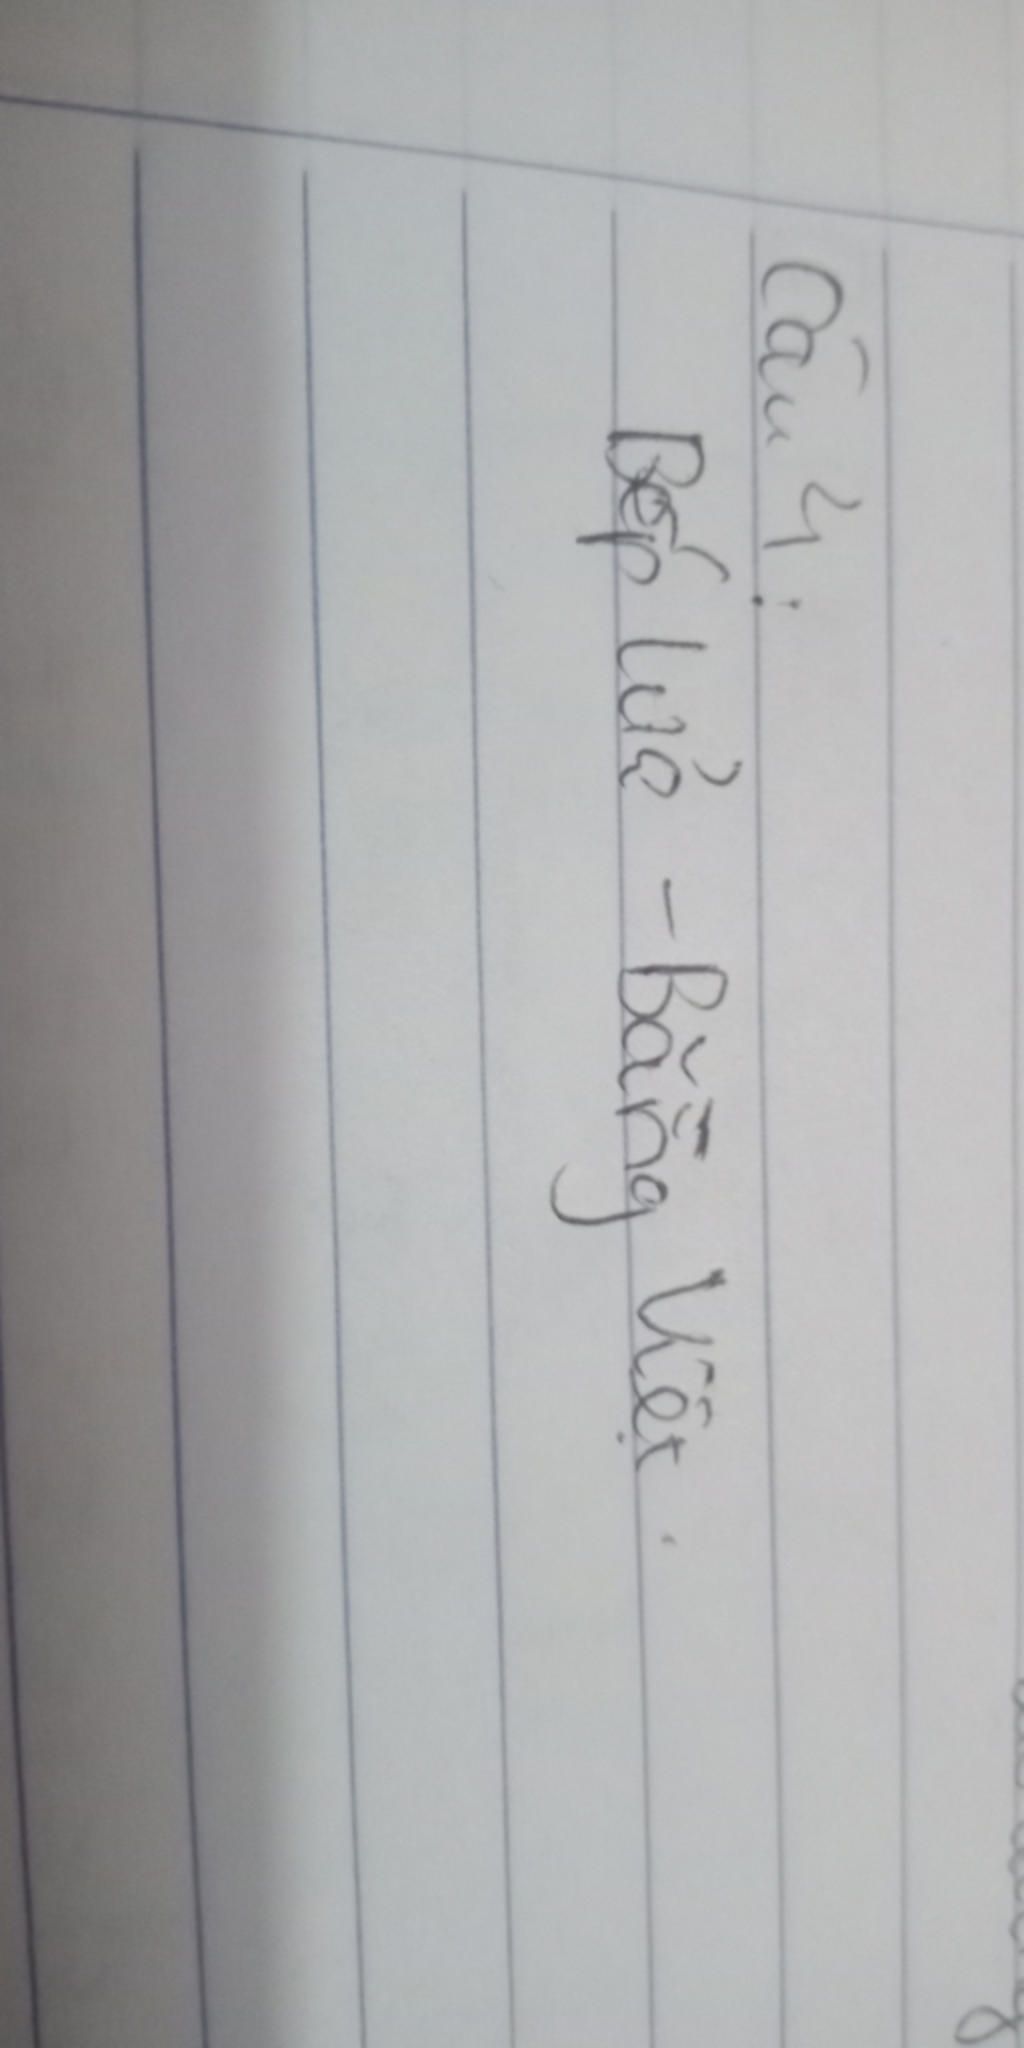 Câu 4:
Bếp lửa - Bằng Việt.